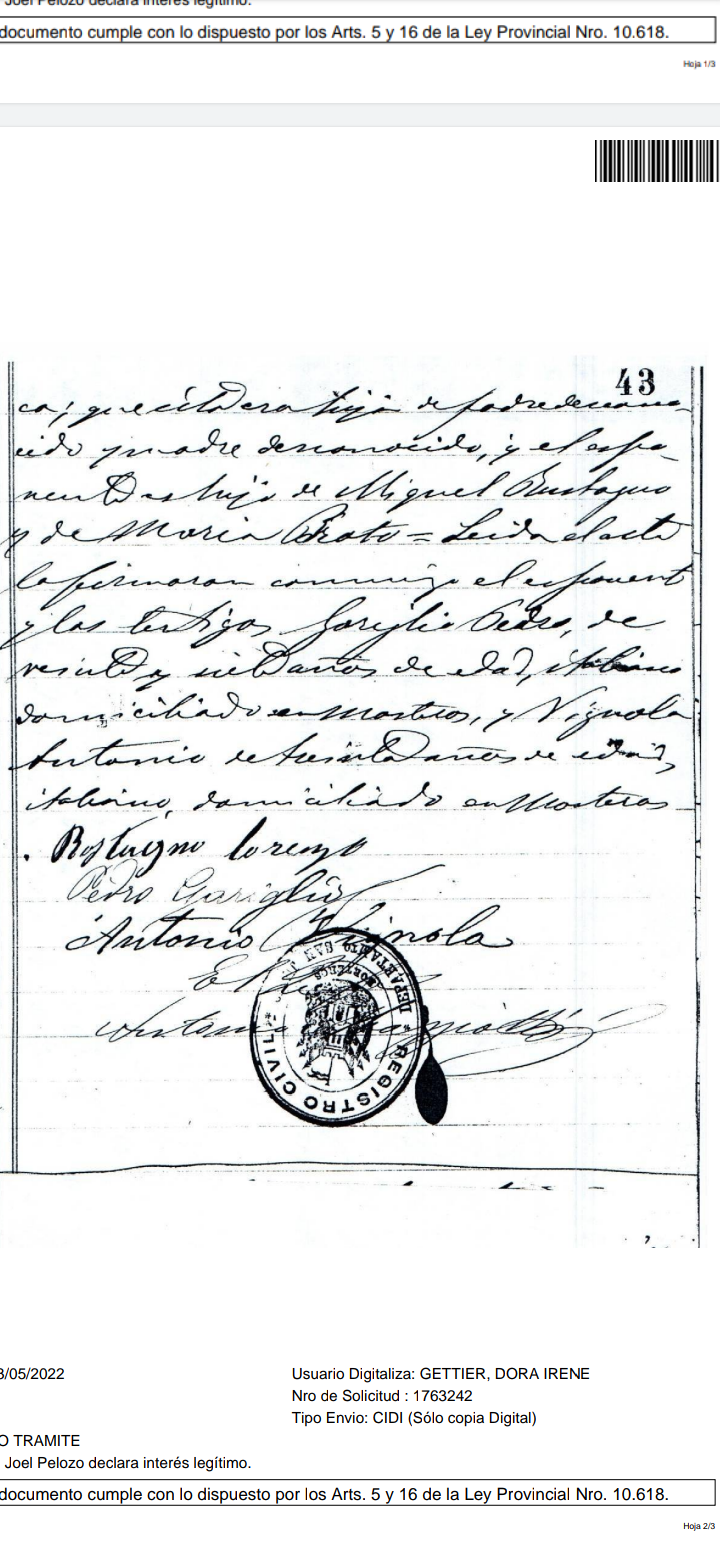 Joel Pelozo declara interés legítimo.
documento cumple con lo dispuesto por los Arts. 5 y 16 de la Ley Provincial Nro. 10.618.
Hoja 1/3
43
ca; que ésta era hija de padre descono-
cido y madre desconocido, y el espo-
nente es hijo de Miguel Rustagno
y de Maria = Leida el acta
la firmaron conmigo el esponent
y los testigos Gariglio Pedro, de
veinte y siete años de edad, italiano
domiciliado en Morteros, y Vignola
Antonio de treinta años de edad,
italiano, domiciliado en Morteros
Rostagno Lorenzo
Pedro Gariglio
Antonio Vignola
Antonio
REGISTRO CIVIL
DEPARTAMENTO SAN
MORTEROS
3/05/2022
Usuario Digitaliza: GETTIER, DORA IRENE
Nro de Solicitud : 1763242
Tipo Envio: CIDI (Sólo copia Digital)
O TRAMITE
Joel Pelozo declara interés legítimo.
documento cumple con lo dispuesto por los Arts. 5 y 16 de la Ley Provincial Nro. 10.618.
Hoja 2/3